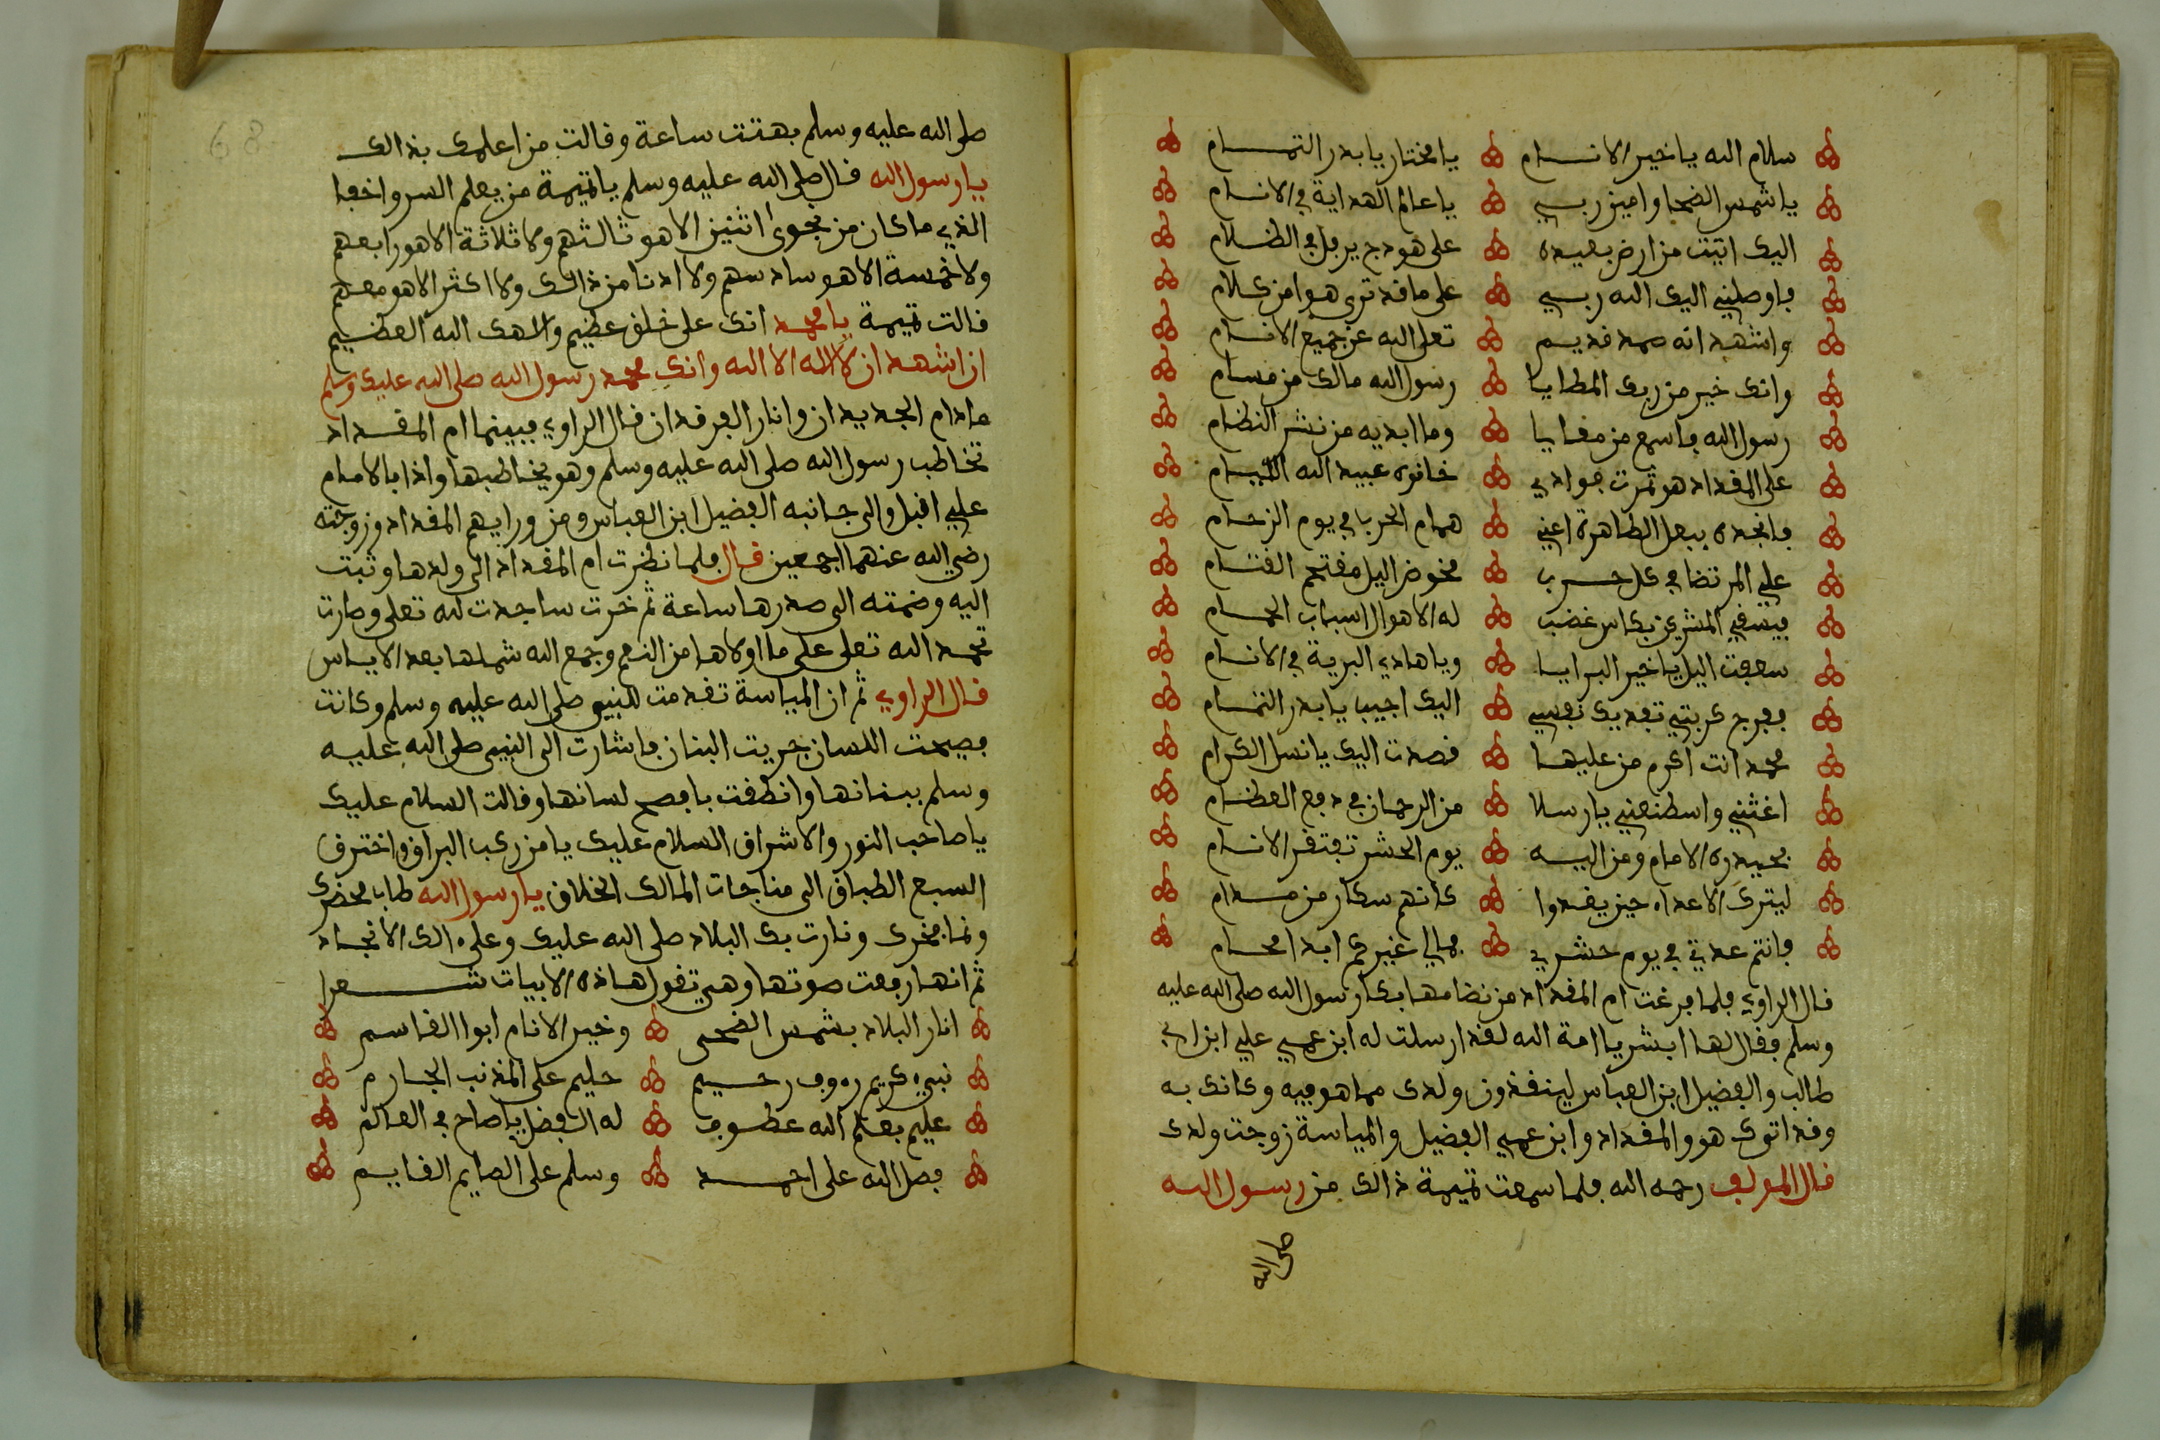 سلام الله يا خير الانام يا مختار يا بدر التمام
يا شمس الضحا وامين ربي يا عالم الهداية في الانام
اليك اتيت من ارض بعيده على هودج يرفل في الظلام
فاوصلني اليك الله ربي على ما قد ترى هوا من كلام
واشهد انه صمد قديم تعلى الله عن جميع الانام
وانك خير من ركب المطايا رسول الله مالك من مسام
رسول الله فاسمع من مقايا وما ابديه من نشر النظام
على المقداد هو ثمرت فوادي خانوه عبيد الله الليام
فانجده ببعل الطاهرة اعني همام الحربا في يوم الزحام
علي المرتضا في كل حرب مخوض اليل مفتحم القتام
فيسقي المشركين بكاس غضب له الاهوال اسباب الحمام
سعيت اليك يا خير البرايا ويا هادي البرية في الانام
ففرج كربتي تفديك نفسي اليك اجيب يا بدر التمام
محمد انت اكرم من عليها قصدت اليك يا نسل الكرام
اغثني واسطنعني يا رسلا من الرحمان في دفع العظام
بحيدره الامام ومن اليه يوم الحشر تفتقر الانام
ليترك الاعداه حين يغدوا كانهم سكار من مدام
فانتم عدتي في يوم حشري فمالي غيركم ابدا محام
قال الراوي فلما فرغت ام المقداد من نضامها بكا رسول الله صلى الله عليه
وسلم فقال لها ابشر يا امة الله لقد ارسلت له ابن عمي علي ابن ابي
طالب والفضيل ابن العباس لينقذون ولدك مما هو فيه وكانك به
وقد اتوك هو والمقداد وابن عمي الفضيل والمياسة زوجت ولدك
قال المولف رحمه الله فلما سمعت تميمة ذالك من رسول الله
صلى الله
68
صلى الله عليه وسلم بهتت ساعة وقالت من اعلمك بذالك
يا رسول الله قال صلى الله عليه وسلم يا تميمة من يعلم السر واخفا
الذي ما كان من نجوى اثنين الا هو ثالثهم ولا ثلاثة الا هو رابعهم
ولا خمسة الا هو سادسهم ولا ادنا من ذالك ولا اكثر الا هو معهم
قالت تميمة يا محمد انك على خلق عظيم والهك الله العظيم
ان اشهد ان لا اله الا الله وانك محمد رسول الله صلى الله عليك وسلم
مادام الجديدان وانار الفرقدان قال الراوي فبينما ام المقداد
تخاطب رسول الله صلى الله عليه وسلم وهو يخاطبها واذا بالامام
علي اقبل والى جانبه الفضيل ابن العباس ومن ورايهم المقداد وزوجته
رضي الله عنهما اجمعين قال فلما نظرت ام المقداد الى ولدها وثبت
اليه وضمته الى صدرها ساعة ثم خرت ساجدت لله تعلى وصارت
تحمد الله تعلى على ما اولاها من النعم وجمع الله شملها بعد الاياس
قال الراوي ثم ان المياسة تقدمت للنبي صلى الله عليه وسلم وكانت
فصيحت اللسان جريت البنان فاشارت الى النبي صلى الله عليه
وسلم ببنانها وانطقت بافصح لسانها وقالت السلام عليك
يا صاحب النور والاشراق السلام عليك يا من ركب البراق واخترق
السبع الطباق الى مناجات المالك الخلاق يا رسول الله طاب محضرك
ونما فخرك ونارت بك البلاد صلى الله عليك وعلى الك الانجاد
ثم انها رفعت صوتها وهي تقول هاذه الابيات شعرا
انار البلاد بشمس الضحى وخير الانام ابوا القاسم
نبيء كريم رءوف رحيم حليم على المذنب الجارم
عليم بعلم الله عطوف له الفضل يا صاح في العالم
فصل الله على احمد وسلم على الصايم القايم